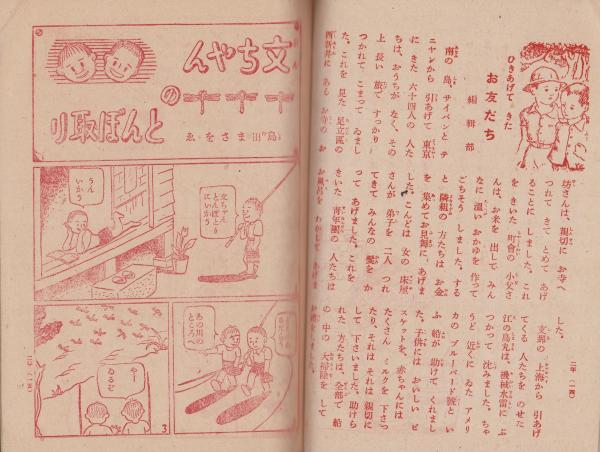 ひきあげてきた
お友だち
編輯部
南の島、サイパンと テ
ニヤンから 引あげて 東京
に きた 六十四人の 人た
ちは、おうちが なく、その
上 長い 旅で すつかり
つかれて こまつて ゐまし
た。これを 見た 足立區の
西新井に ある お寺の お
坊さんは、親切に お寺へ
つれて きて とめて あげ
る ことに しました。これ
を きいた 町會の 小父さ
んは、お米を 出して みん
なに 温い おかゆを 作つて
ごちそう しました。する
と 隣組の 方たちは お金
を 集めて お見舞に、あげま
した。こんどは 女の 床屋
さんが 弟子を 二人 つれ
てきて みんなの 髪を か
つて あげました。これを
きいた 青年團の 人たちは
お風呂を わかして あげま
した。
支那の 上海から 引あげ
てくる 人たちを のせた
江の島丸は、機械水雷に ぶ
つかつて 沈みました。ちや
うど 近くに ゐた アメリ
カの ブルーバード號と い
ふ 船が 助けて くれまし
た。子供には おいしい ビ
スケットを、赤ちやんには
たくさん ミルクを 下さつ
たり、それは それは 親切に
して 下さいました。助けら
れた 方たちは、全部で 船
の 中の 大掃除を して
二年 (一四)
文ちやん
の
とんぼ取り
島田まさを・ゑ
文ちやん
とんぼとり
にいかう
うん
いかう
あの川の
ところへ
やー
ゐるぞ
3